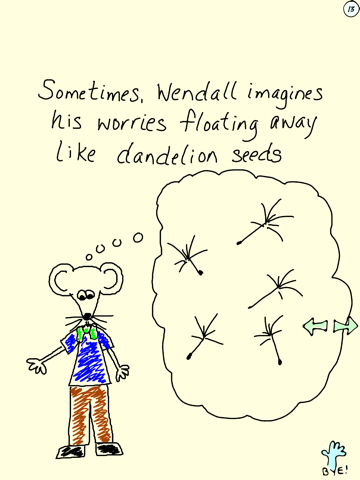 13
Sometimes, Wendall imagines
his worries floating away
like dandelion seeds
BYE!